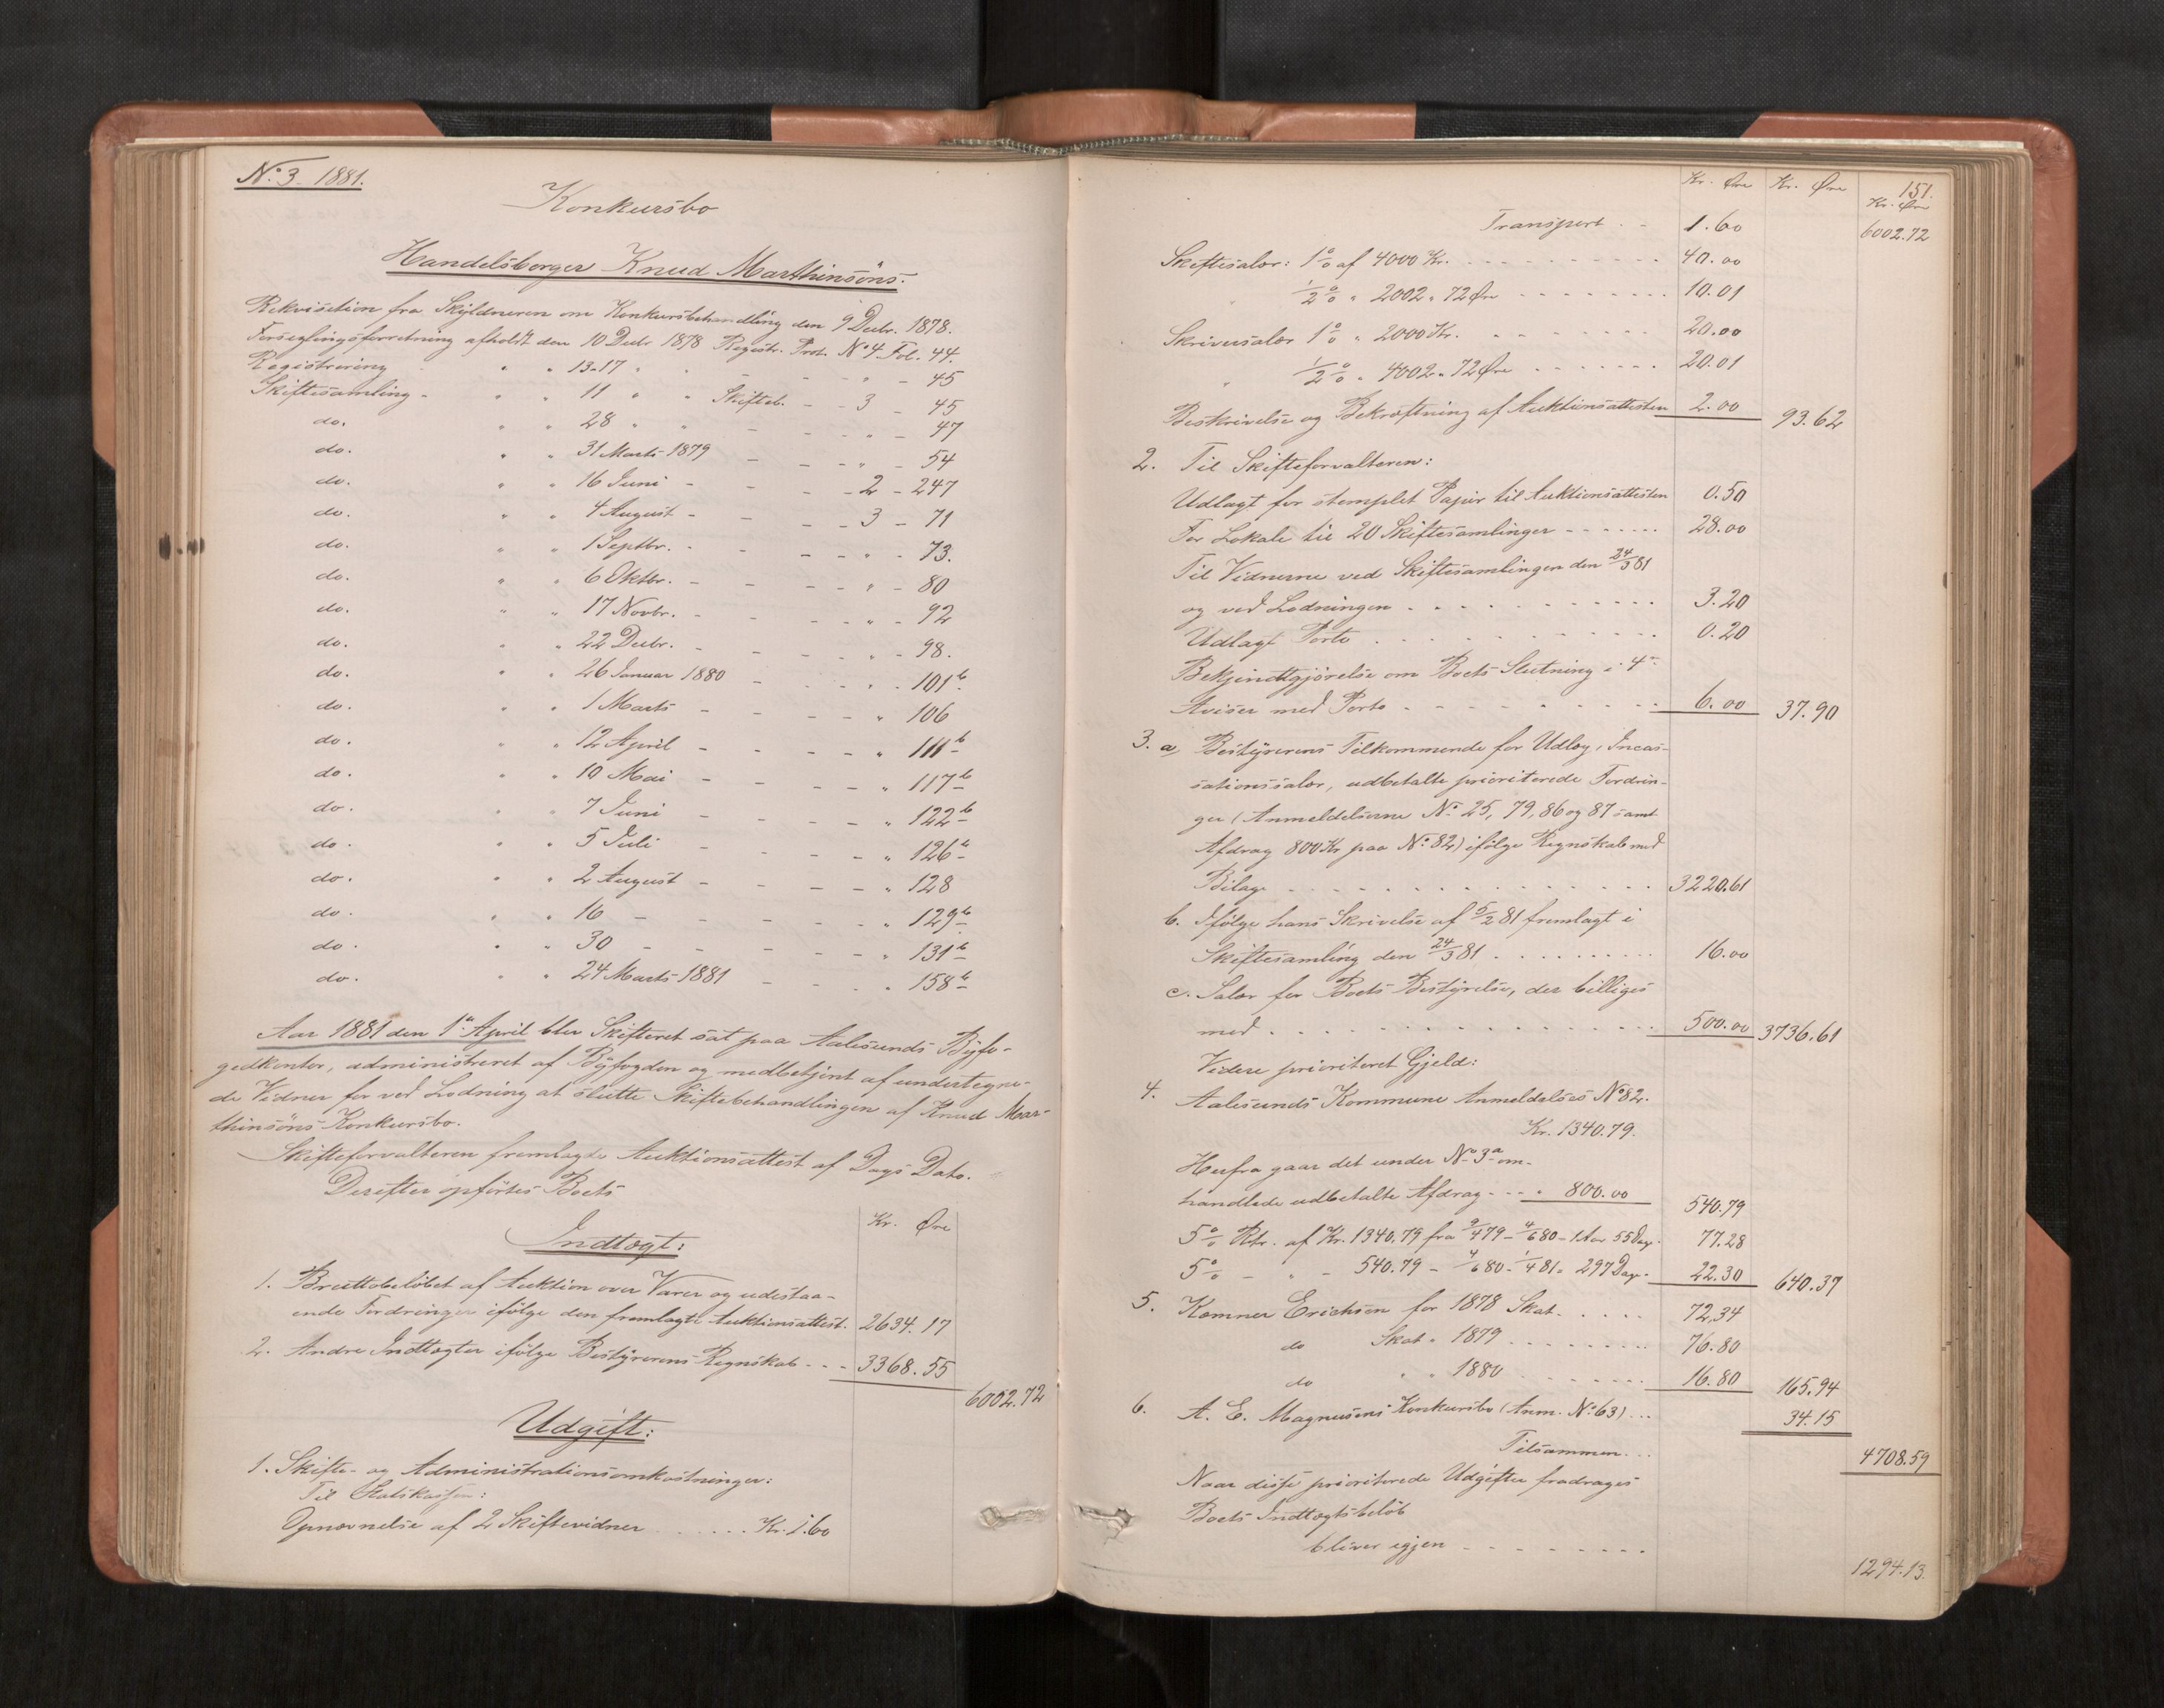 No. 3 1881.
Konkursbo
Handelsborger Knud Marthinsöns.
Rekvisition fra Skyldneren om Konkursbehandling den 9 Decbr. 1878.
Forseglingsforretning afholdt den 10 Decbr 1878 Registr. Prot. No 4 Fol. 44.
Registrering " " 13-17 " " - - " - 45
Skiftesamling - " " 11 " " Skifteb. - - 3 - 45
do. " " 28 " " - - - " - 47
do. " " 31 Marts 1879 - - - " - 54
do. " " 16 Juni - - - - 2 - 247
do. " " 4 August - - - - 3 - 71
do. " " 1 Septbr. - - - - " - 73.
do. " " 6 Oktbr. - - - - " - 80
do. " " 17 Novbr. - - - - " - 92
do. " " 22 Decbr. - - - - " - 98.
do. " " 26 Januar 1880 - - - " - 101b
do. " " 1 Marts - - - - " 106
do. " " 12 April - - - - " 111b
do. " " 10 Mai - - - - " 117b
do. " " 7 Juni - - - - " 122b
do. " " 5 Juli - - - - " 126b
do. " " 2 August - - - - " 128
do. " " 16 - - - - - " 129b
do. " " 30 - - - - - " 131b
do. " " 24 Marts 1881 - - - " 158b
Aar 1881 den 1ste April blev Skifteret sat paa Aalesunds Byfo-
gedkontor, administreret af Byfogden og medbetjent af undertegne-
de Vidner for ved Lodning at slutte Skiftebehandlingen af Knud Mar-
thinsöns Konkursbo.
Skifteforvalteren fremlagde Auktionsattest af Dags Dato.
Derefter opförtes Boets
Kr. Öre
Indtægt:
1. Bruttobelöbet af Auktion over Varer og udestaa-
ende Fordringer ifölge den fremlagte Auktionsattest. 2634.17
2. Andre Indtægter ifölge Bestyrerens Regnskab - - - 3368.55
6002.72
Udgift:
1. Skifte- og Administrationsomkostninger:
Til Statskassen:
Opnævnelse af 2 Skiftevidner ...... Kr. 1.60
151.
Kr. Öre Kr. Öre Kr. Öre
Transport . - 1.60 6002.72
Skiftesalær: 1% af 4000 Kr. .......... 40.00
1/2% " 2002 " 72 Öre ........ 10.01
Skriversalær 1% " 2000 Kr. ........ 20.00
" 1/2% " 4002 " 72 Öre ....... 20.01
Beskrivelse og Bekræftning af Auktionsattesten 2.00 93.62
2. Til Skifteforvalteren:
Udlagt for stemplet Papir til Auktionsattesten 0.50
For Lokale til 20 Skiftesamlinger ....... 28.00
Til Vidnerne ved Skiftesamlingen den 24/3 81
og ved Lodningen .......... 3.20
Udlagt Porto ............ 0.20
Bekjendtgjörelse om Boets Slutning i 4
Aviser med Porto .......... 6.00 37.90
3. a, Bestyrerens Tilkommende for Udlæg, Incas-
sationssalær, udbetalte prioriterede Fordrin-
ger (Anmeldelserne No. 25, 79, 86 og 87 samt
Afdrag 800 Kr paa No. 82) ifölge Regnskab med
Bilage ................ 3220.61
b. Ifölge hans Skrivelse af 5/2 81 fremlagt i
Skiftesamling den 24/3 81 .......... 16.00
c. Salær for Boets Bestyrelse, der billiges
med ................. 500.00 3736.61
Videre prioriteret Gjeld:
4. Aalesunds Kommune Anmeldelses No 82.
Kr. 1340.79.
Herfra gaar det under No 3a om-
handlede udbetalte Afdrag - - - " 800.00 540.79
5% Rtr. af Kr. 1340.79 fra 9/4 79 - 4/6 80 - 1 Aar 55 Dage. 77.28
5% - " - 540.79 - 4/6 80 - 1/4 81 = 297 Dage - 22.30 640.37
5. Kæmner Erichsen for 1878 Skat ..... 72,34
do Skat " 1879 ......... 76.80
do " " 1880 ........ 16.80 165.94
6. A. E. Magnusens Konkursbo (Anm. No. 63) ... 34.15
Tilsammen ... 4708.59
Naar disse prioriterede Udgifter fradrages
Boets Indtægtsbelöb
bliver igjen ......... 1294.13.